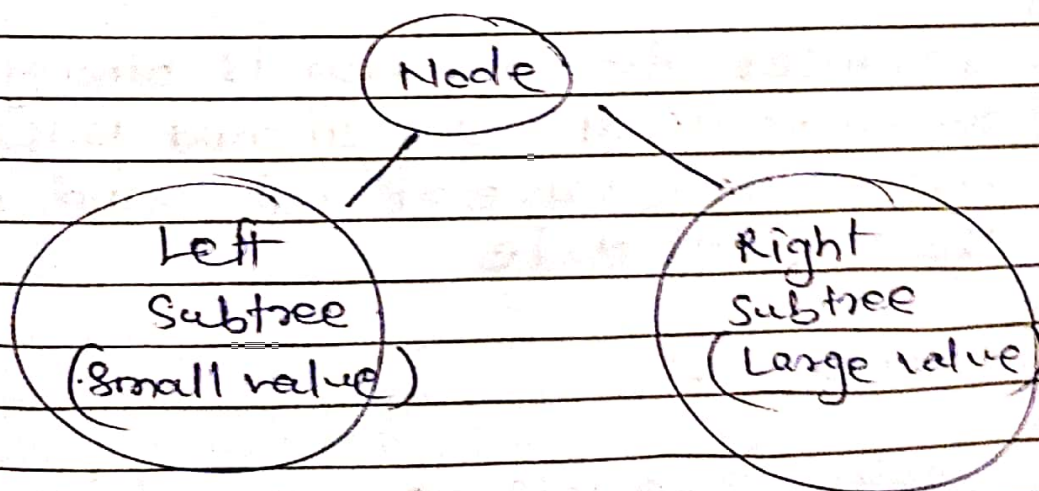 Node
Left
Subtree
(Small value)
Right
Subtree
(Large value